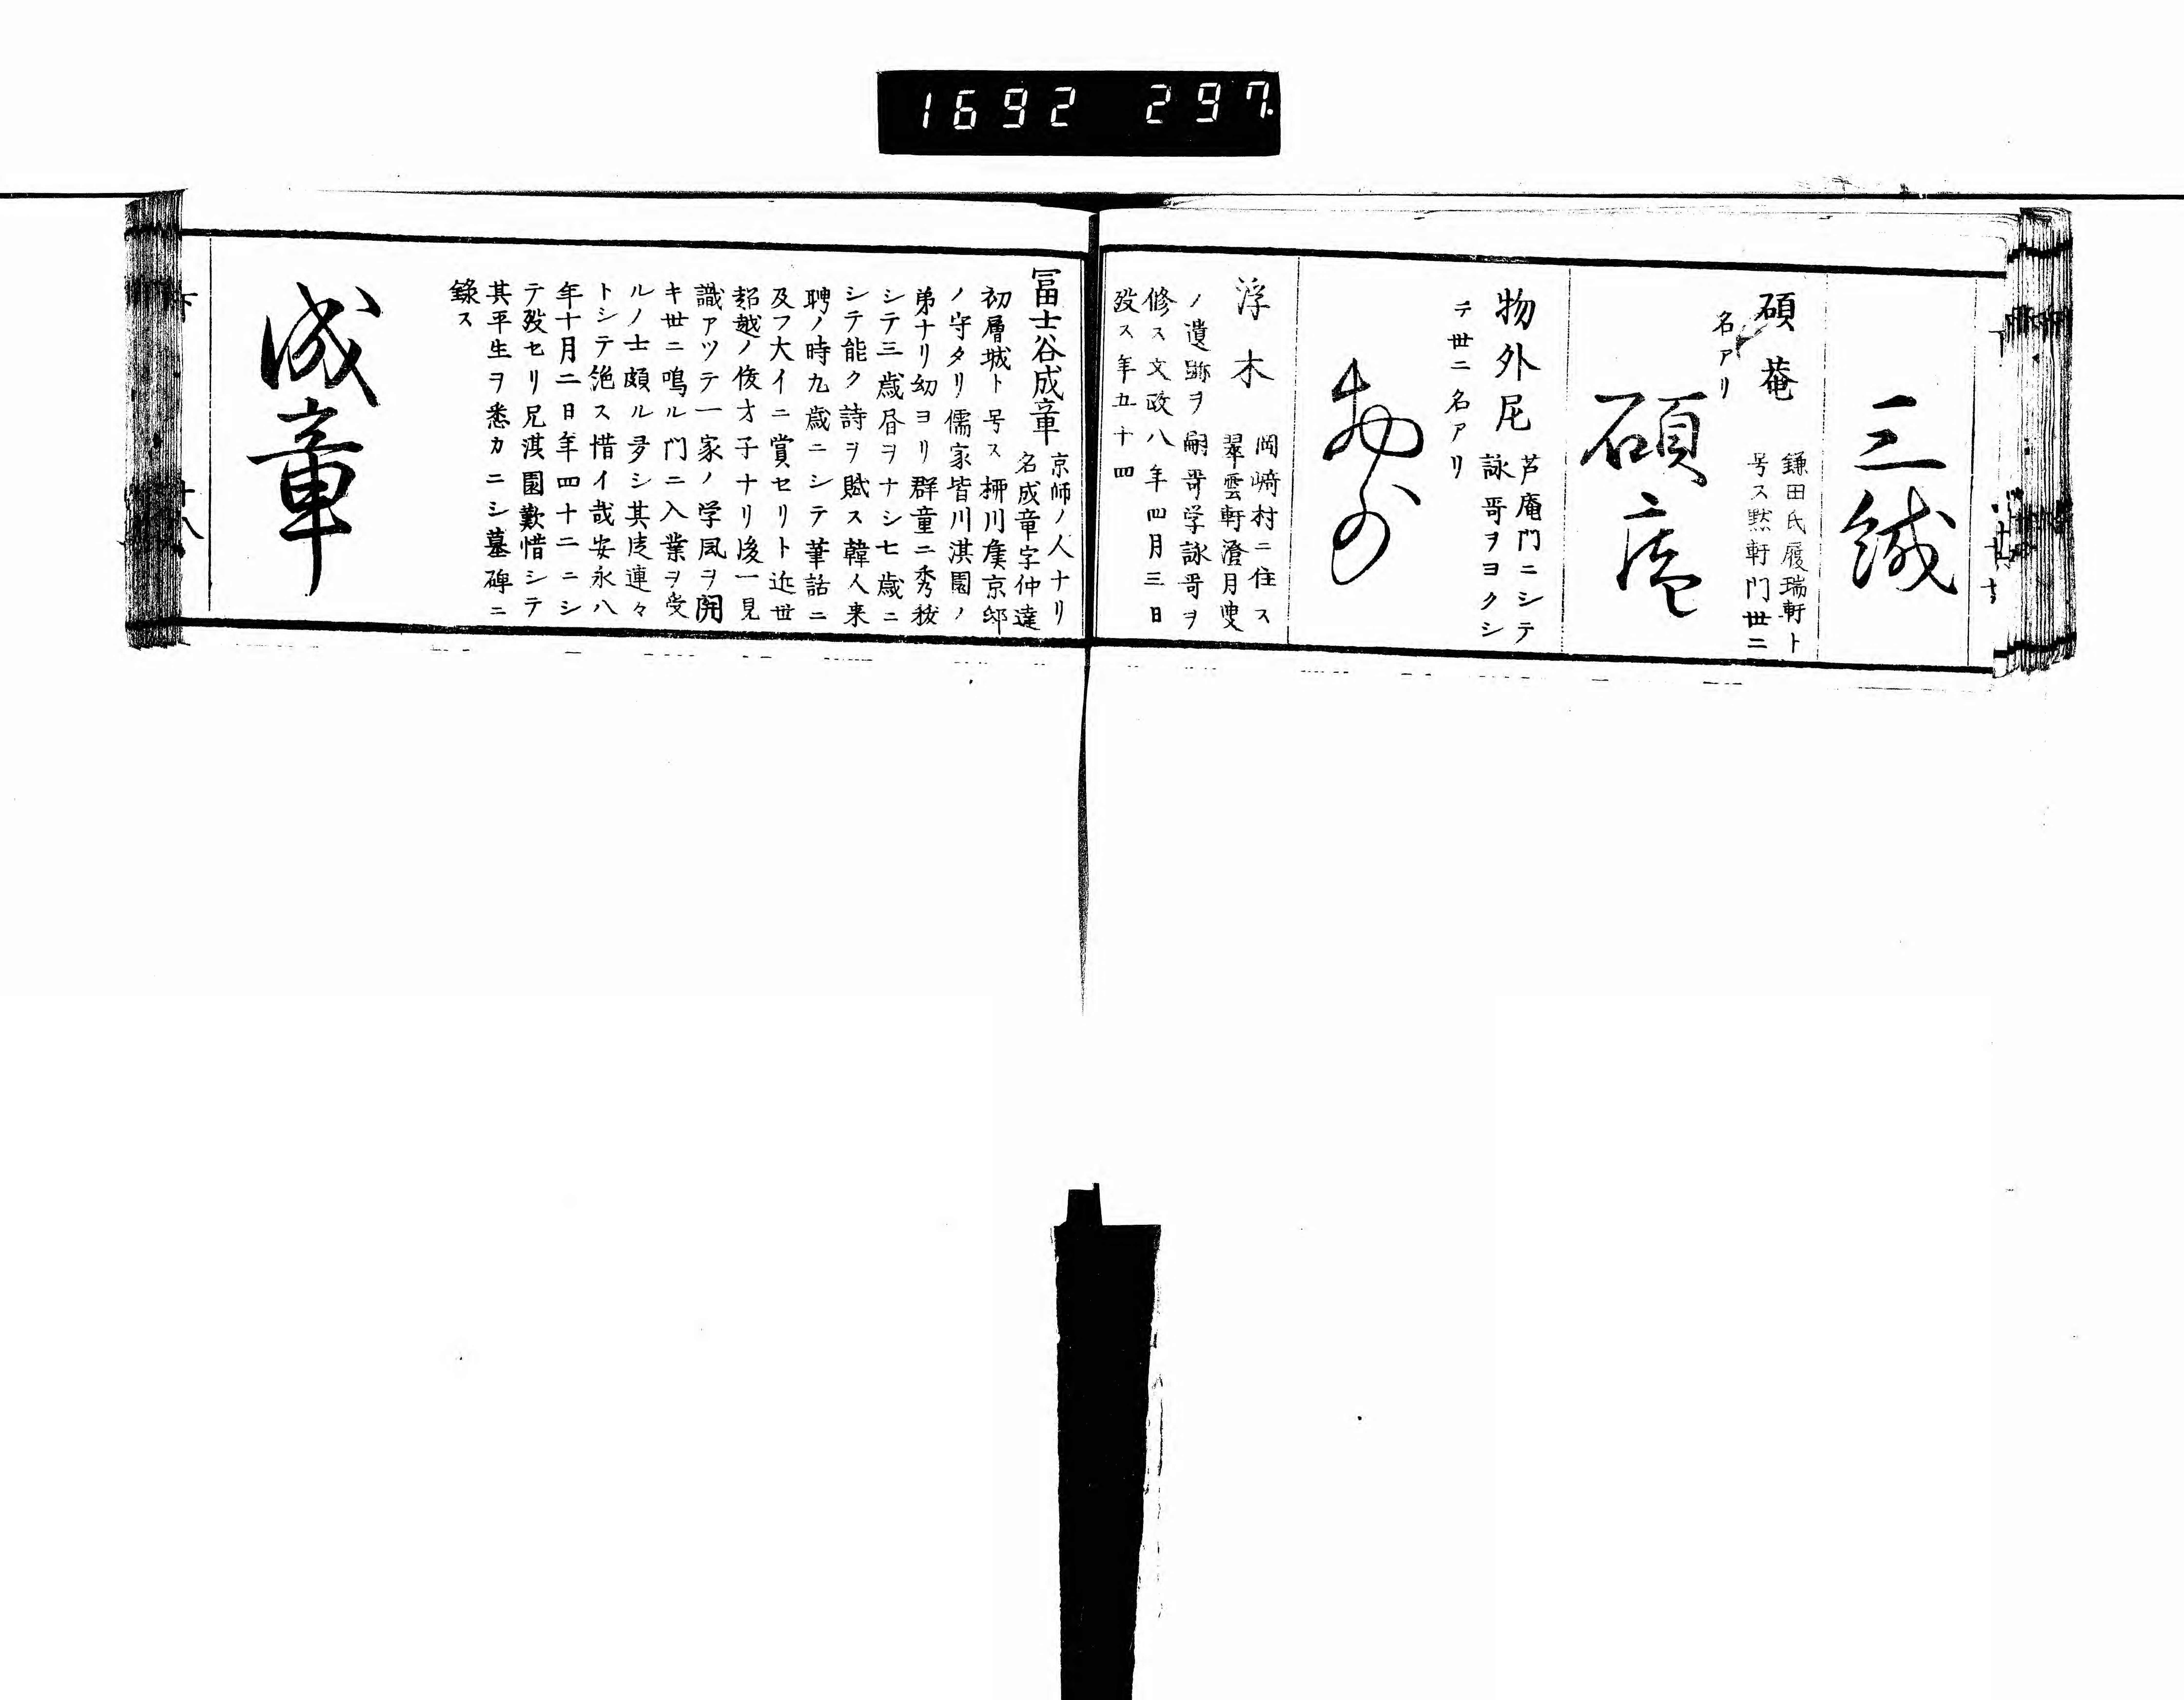 1692 297
三緘
碩菴
鎌田氏履瑞軒ト
号ス黙軒門世ニ
名アリ
碩庵
物外尼
芦庵門ニシテ
詠哥ヲヨクシ
テ世ニ名アリ
物外
浮木
岡崎村ニ住ス
翠雲軒澄月叟
ノ遺跡ヲ嗣哥学詠哥ヲ
修ス文政八年四月三日
殁ス年五十四
冨士谷成章
京師ノ人ナリ
名成章字仲達
初層城ト号ス栁川矦京邸
ノ守タリ儒家皆川淇園ノ
弟ナリ幼ヨリ群童ニ秀䇦
シテ三歳昏ヲナシ七歳ニ
シテ能ク詩ヲ賦ス韓人来
聘ノ時九歳ニシテ筆話ニ
及フ大イニ賞セリト近世
超越ノ俊才子ナリ後一見
識アツテ一家ノ学風ヲ開
キ世ニ鳴ル門ニ入業ヲ受
ルノ士頗ル多シ其徒連々
トシテ絶ス惜イ哉安永八
年十月二日年四十二ニシ
テ殁セリ兄淇園歎惜シテ
其平生ヲ悉カニシ墓碑ニ
録ス
成章
下 十八